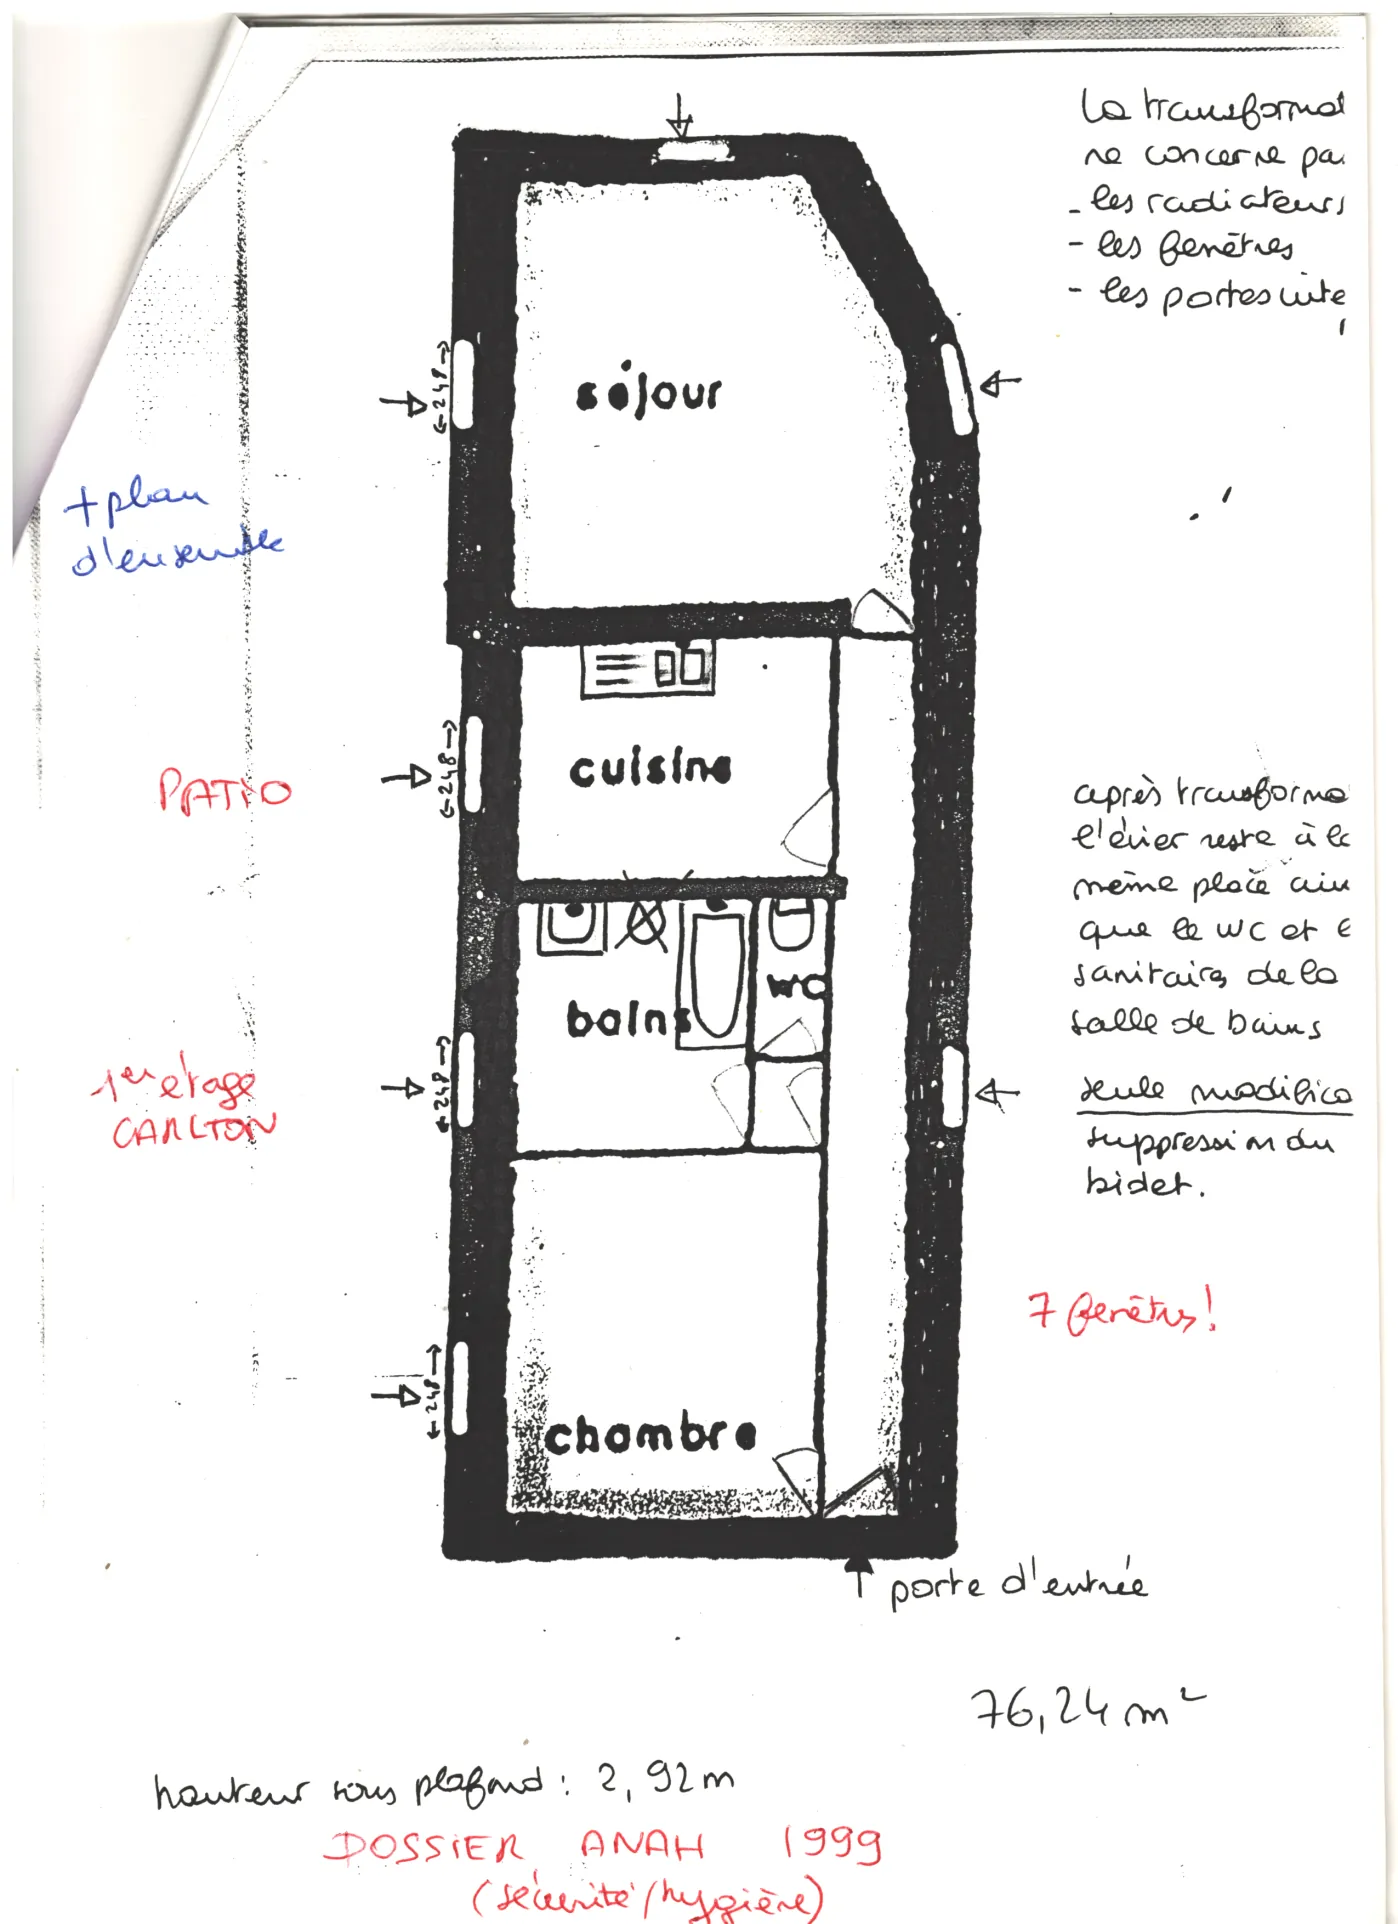 La transformat
ne concerne pa
- les radiateurs
- les fenêtres
- les portes
←248→
séjour
+ plan
d'ensemble
cuisine
←248→
PATIO
après transforma
l'évier reste à la
même place ain
que le WC et l
sanitaires de la
salle de bains
wc
bains
←248→
1er étage
CARLTON
seule modifica
suppression du
bidet.
7 fenêtres!
←248→
chambre
porte d'entrée
76,24 m²
hauteur sous plafond : 2,92 m
DOSSIER ANAH 1999
(sécurité/hygiène)